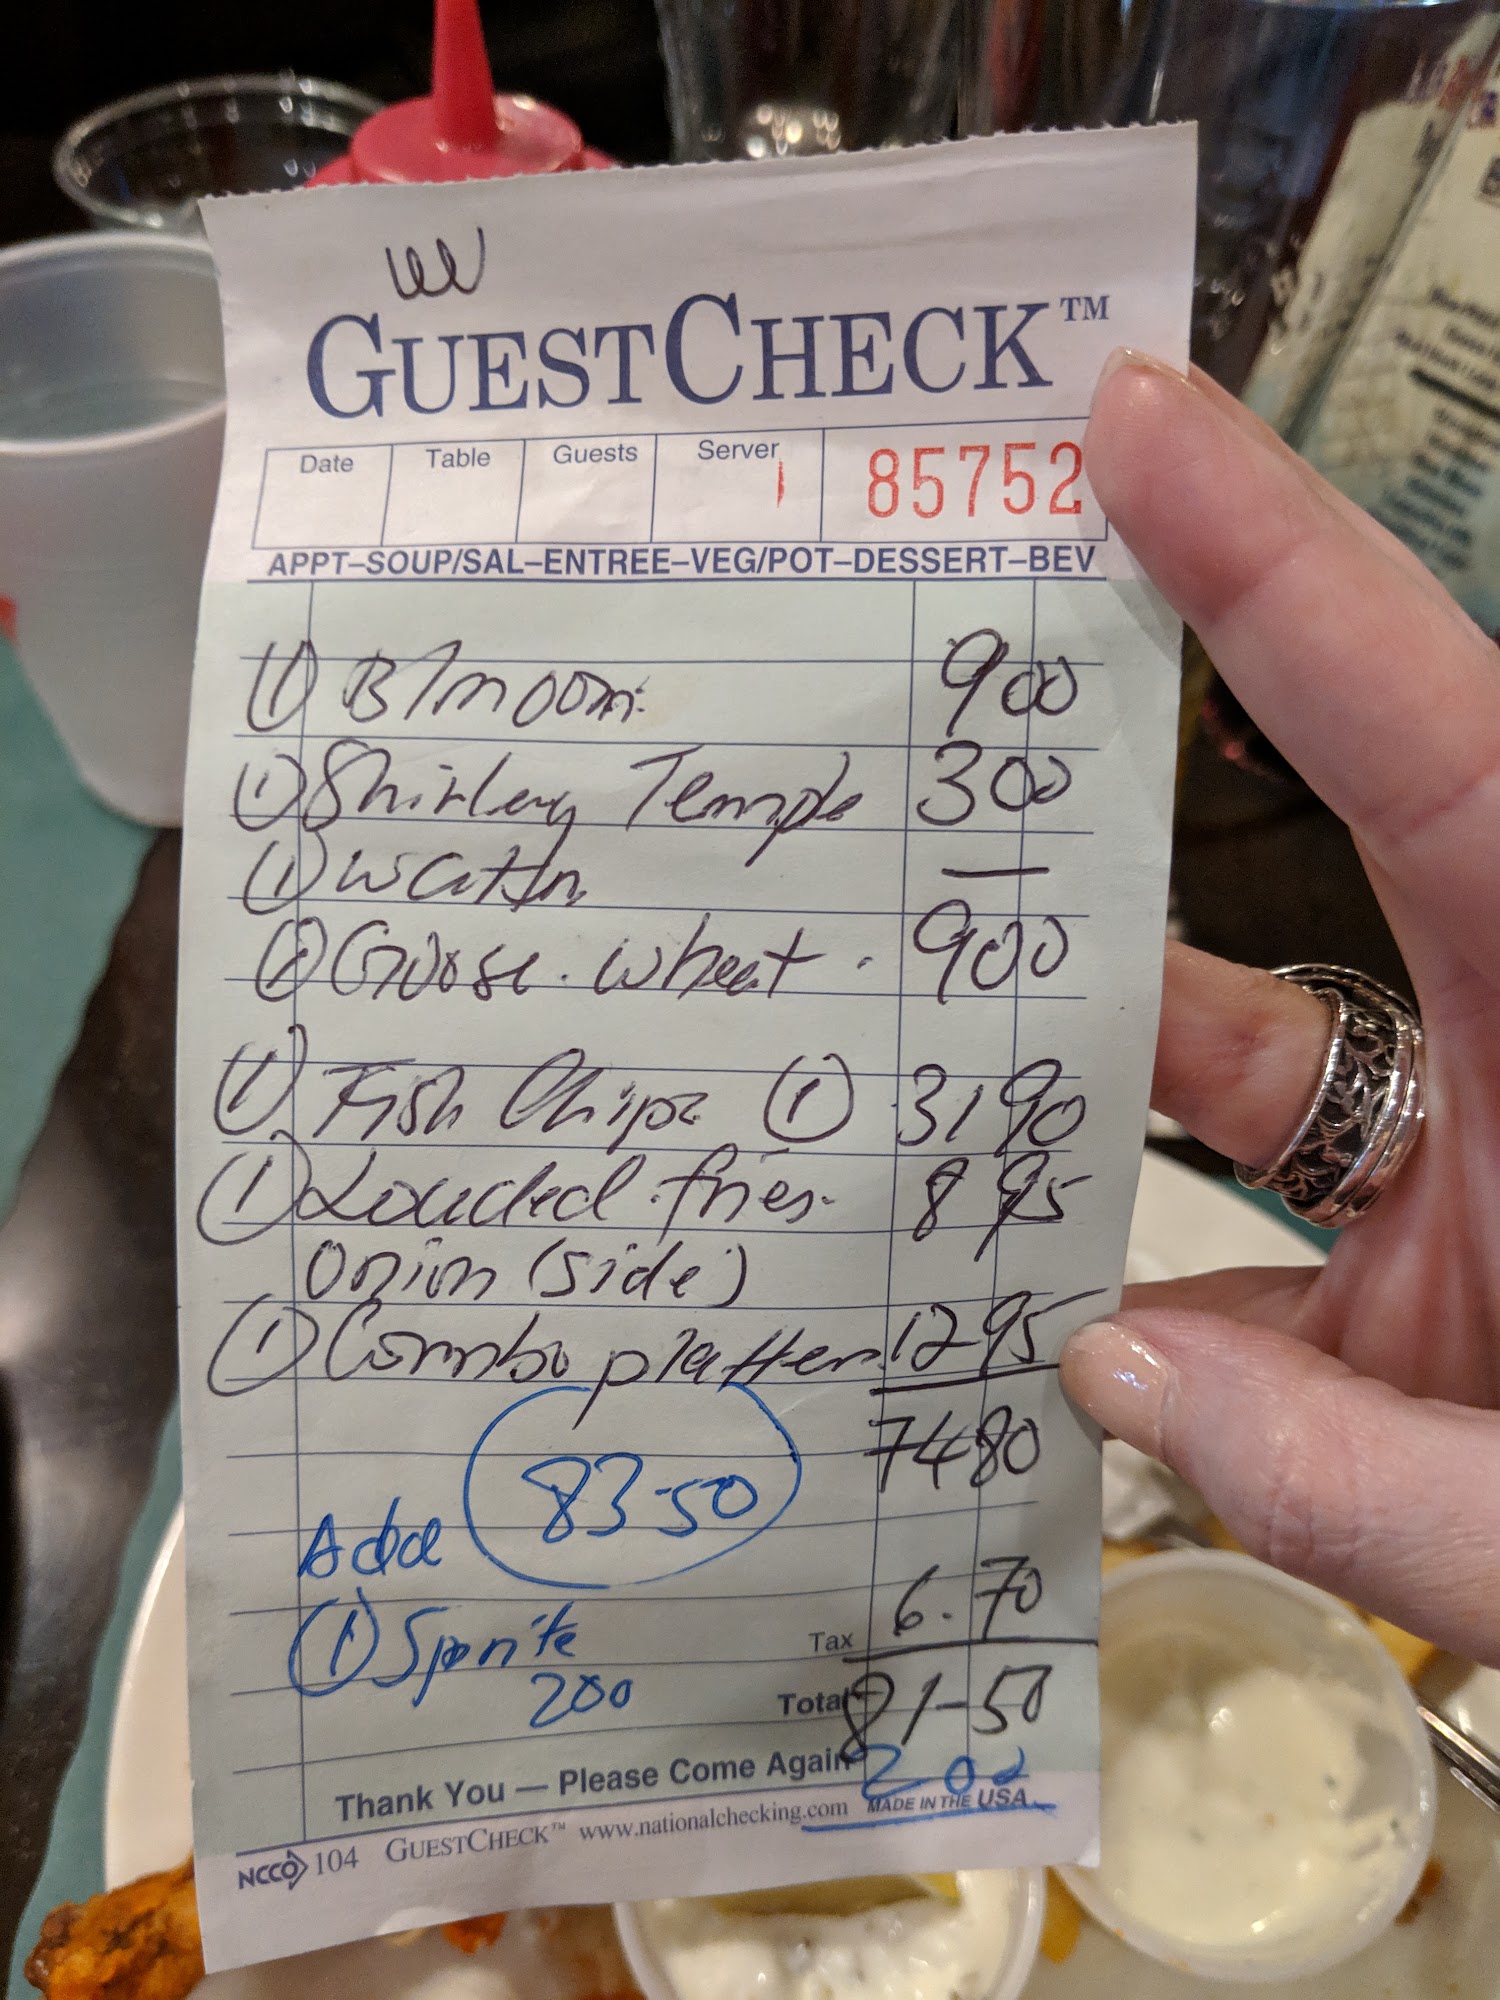 GUESTCHECK™
Date Table Guests Server
1 85752
APPT–SOUP/SAL–ENTREE–VEG/POT–DESSERT–BEV
(1) B/moon. 900
(1) Shirley Temple 300
(1) Water —
Goose. wheat. 900
(1) Fish Chips (1) 31 90
(1) Loaded fries. 8 95
Onion (side)
(1) Combo platter 12 95
74 80
83-50
Add
(1) Sprite
200
Tax 6.70
Total 81-50
2 00
Thank You — Please Come Again
NCCO 104 GUESTCHECK™ www.nationalchecking.com MADE IN THE USA